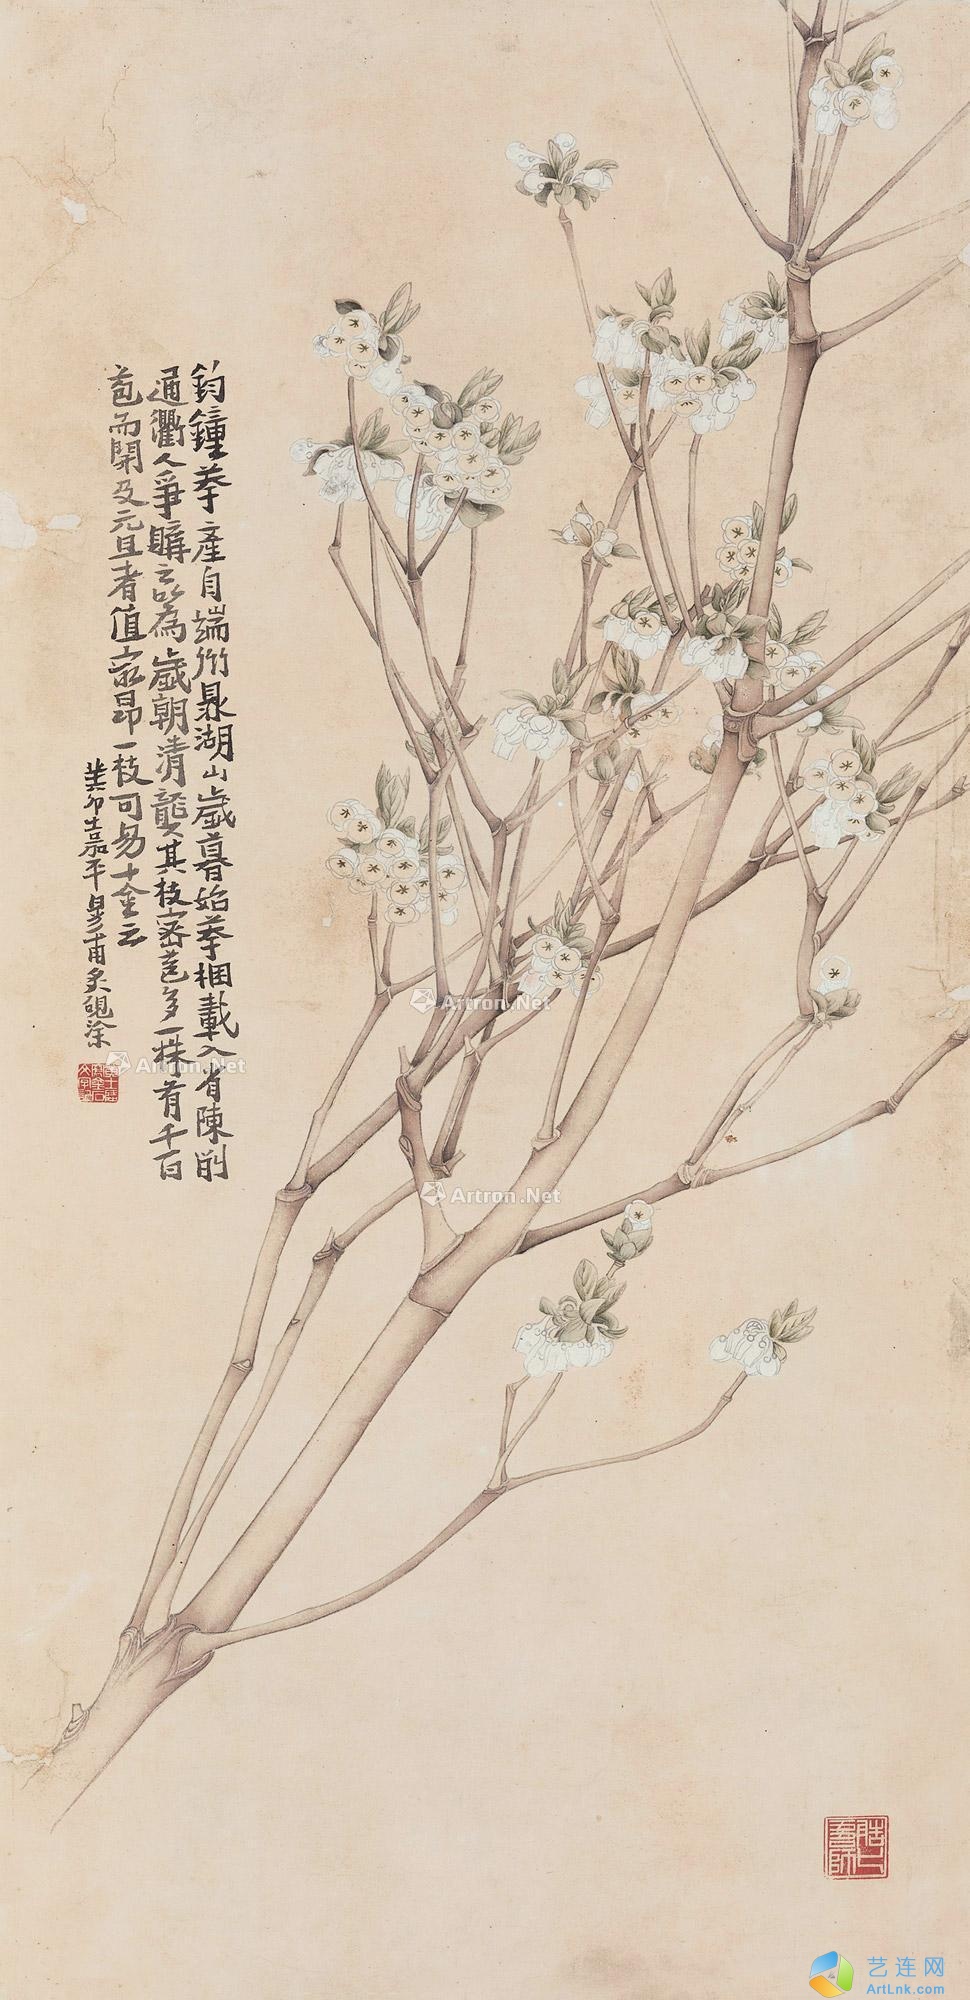 鈞鐘花產自端州鼎湖山歲暮始花梱載入省陳削
通衢人爭購之以為歲朝清龔其枝密苞多一株有千百
苞而開及元旦者值最昂一枝可易十金云
癸卯嘉平
Artron.Net
Artron.Net
Artron.Net
艺连网
ArtLnk.com